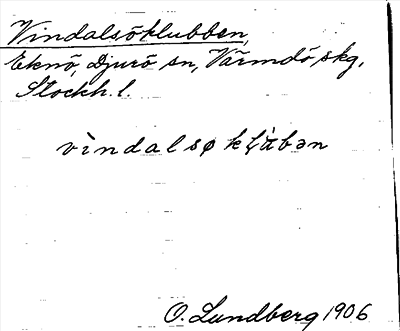 Vindalsöklubben,
Eknö, Djurö sn, Värmdö skg,
Stockh. l.
vìndalsøkl̥ùbən
O. Lundberg 1906